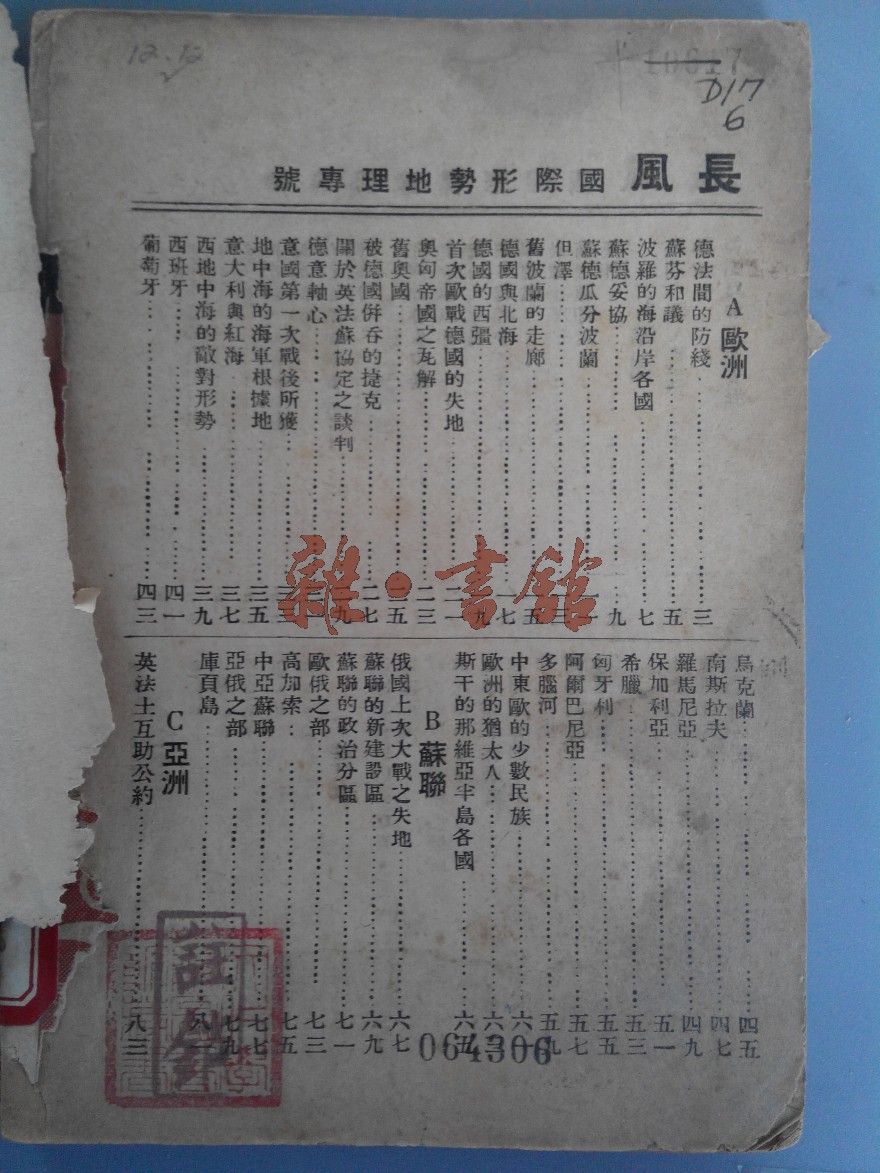 12.12
10617
D17
6
長風 國際形勢地理專號
A 歐洲
德法間的防綫 三
蘇芬和議 五
波羅的海沿岸各國 七
蘇德妥協 九
蘇德瓜分波蘭
但澤
舊波蘭的走廊
德國與北海
德國的西彊
首次歐戰德國的失地
奧匈帝國之瓦解 二三
舊奧國 二五
被德國併吞的捷克 二七
關於英法蘇協定之談判
德意軸心
意國第一次戰後所獲
地中海的海軍根據地 三五
意大利與紅海 三七
西地中海的敵對形勢 三九
西班牙 四一
葡萄牙 四三
烏克蘭 四五
南斯拉夫 四七
羅馬尼亞 四九
保加利亞 五一
希臘 五三
匈牙利 五五
阿爾巴尼亞 五七
多腦河 五九
中東歐的少數民族
歐洲的猶太人
斯干的那維亞半島各國
B 蘇聯
俄國上次大戰之失地 六七
蘇聯的新建設區 六九
蘇聯的政治分區 七一
歐俄之部 七三
高加索 七五
中亞蘇聯 七七
亞俄之部 七九
庫頁島
C 亞洲
英法土互助公約 八三
064306
註銷
雜·書館